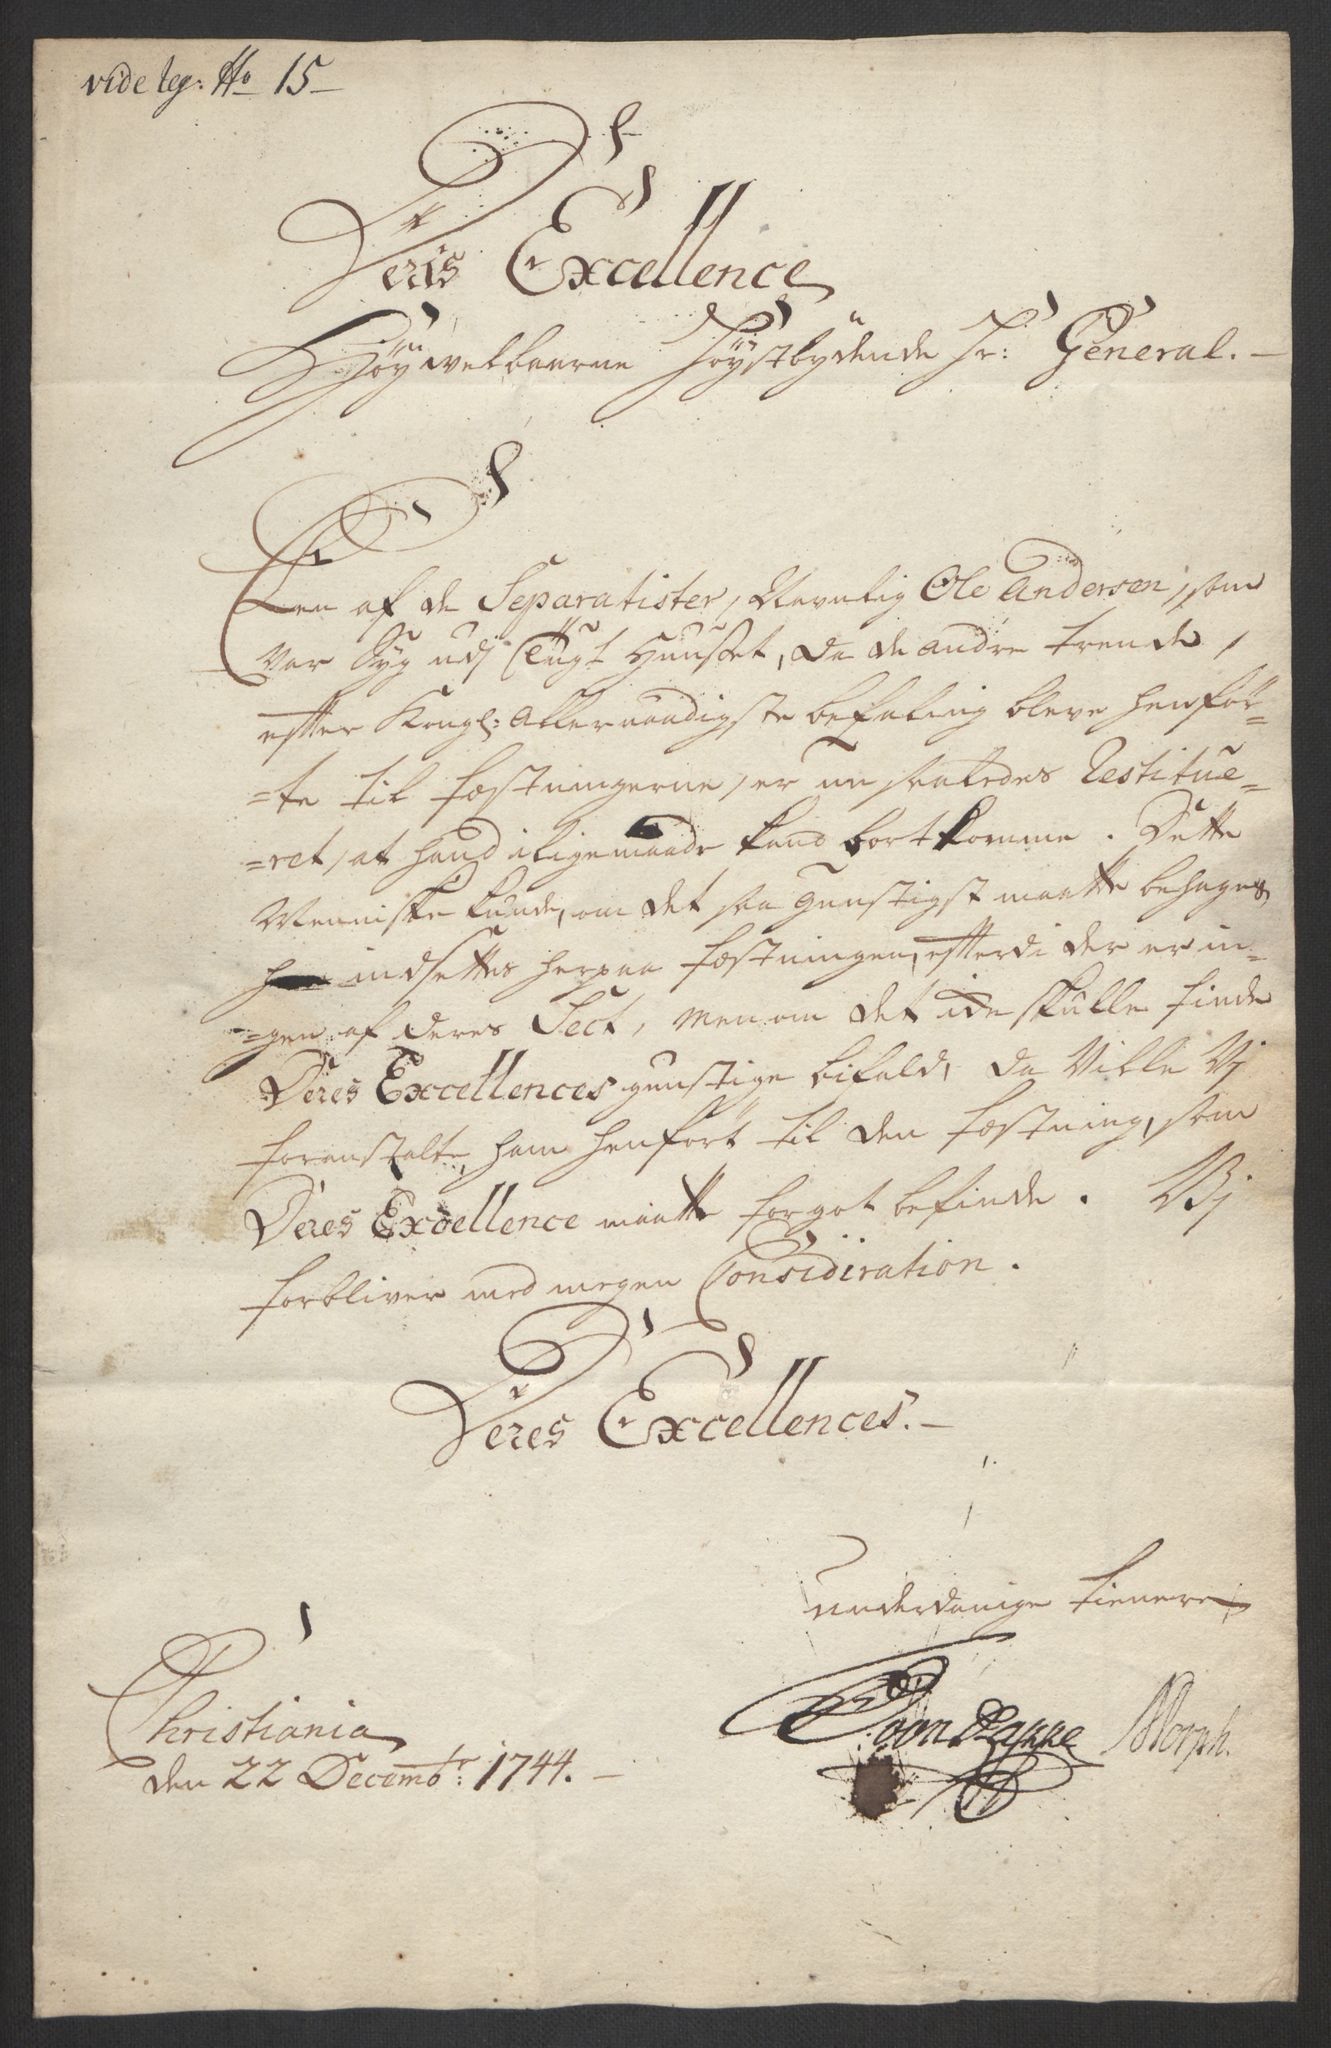 vide leg: No 15
Deris Excellence
Høyvelbaarne Høystbydende Hr: General.
Een af de Separatister, Navnlig Ole Andersen, som
var Syg udj Tugt Huuset, da de andre trende,
efter Kongl: Allernaadigste befaling bleve henfør-
=te til fæstningerne, er nu saaledes Restitue-
=ret, at hand iligemaade kand bortkomme. Dette
Menniske kunde, om det saa gunstigst maatte behage,
indsettes herpaa fæstningen, efterdi der er in-
=gen af deres Sect, men om det icke skulle finde
Deres Excellences gunstige bifald, da ville Vj
foranstalte, ham henført til den fæstning, som
Deres Excellence maatte forgot befinde. Vj
forbliver med megen Consideration.
Deres Excellences.
underdanige tienere
Christiania
den 22 Decembr: 1744.